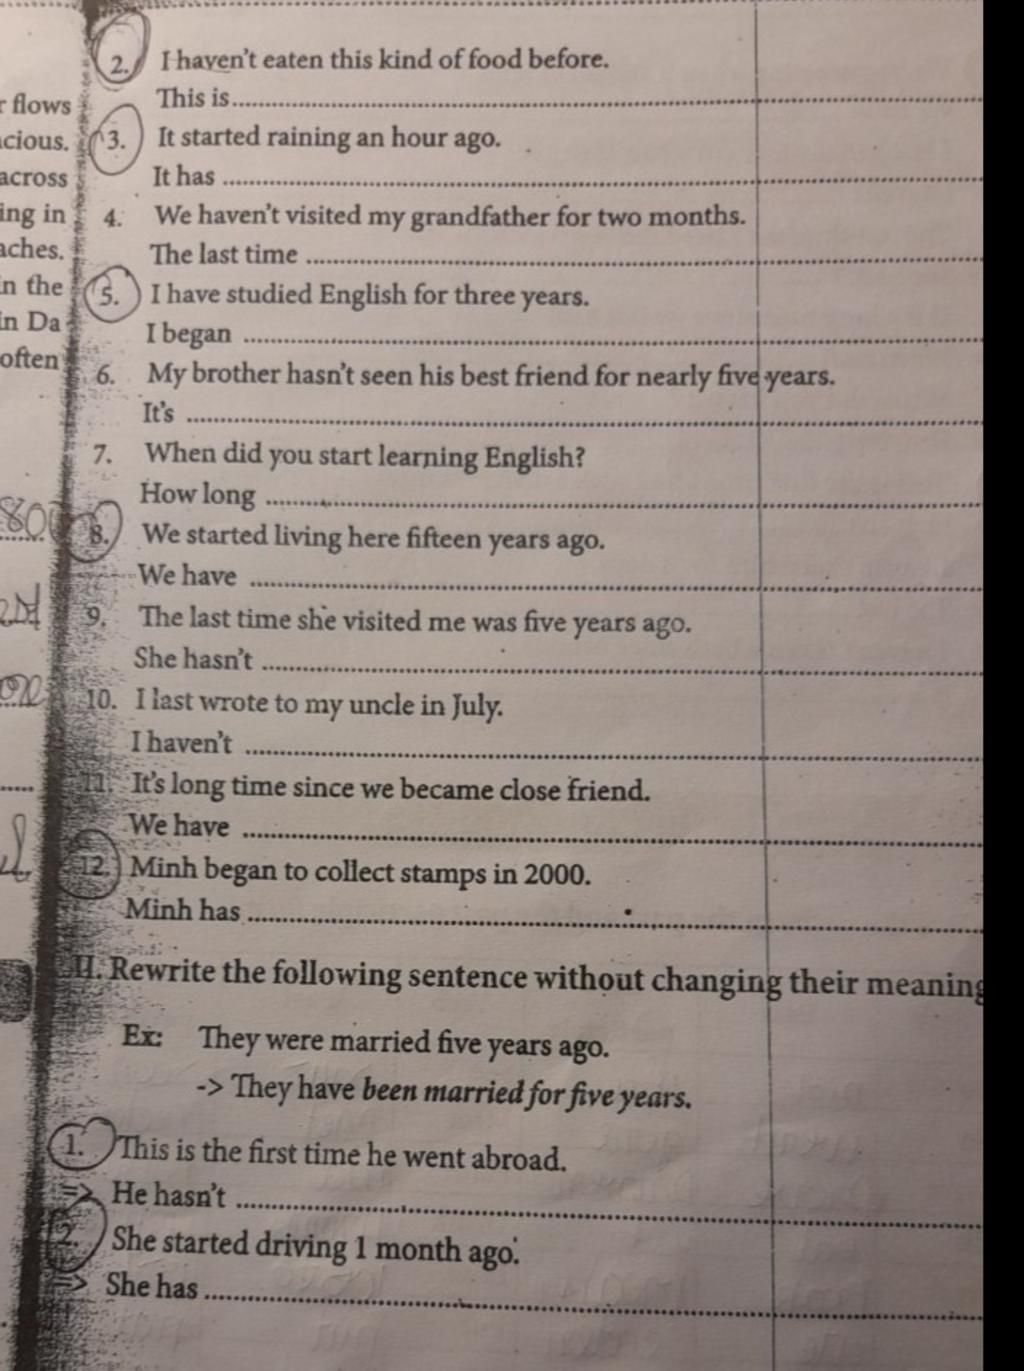 2. I haven't eaten this kind of food before.
r flows
This is................................
cious.
3. It started raining an hour ago.
across
It has ................................
ing in
4. We haven't visited my grandfather for two months.
aches.
The last time ................................
n the
5. I have studied English for three years.
n Da
I began ................................
often
6. My brother hasn't seen his best friend for nearly five years.
It's ................................
7. When did you start learning English?
How long ................................
80
8. We started living here fifteen years ago.
We have ................................
9. The last time she visited me was five years ago.
She hasn't ................................
10. I last wrote to my uncle in July.
I haven't ................................
11. It's long time since we became close friend.
We have ................................
12. Minh began to collect stamps in 2000.
Minh has ................................
II. Rewrite the following sentence without changing their meaning
Ex: They were married five years ago.
-> They have been married for five years.
1. This is the first time he went abroad.
=> He hasn't ................................
2. She started driving 1 month ago.
=> She has ................................